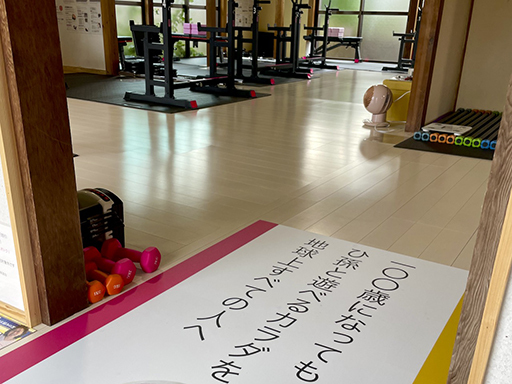 一〇〇歳になっても
ひ孫と遊べるカラダを
地球上すべての人へ